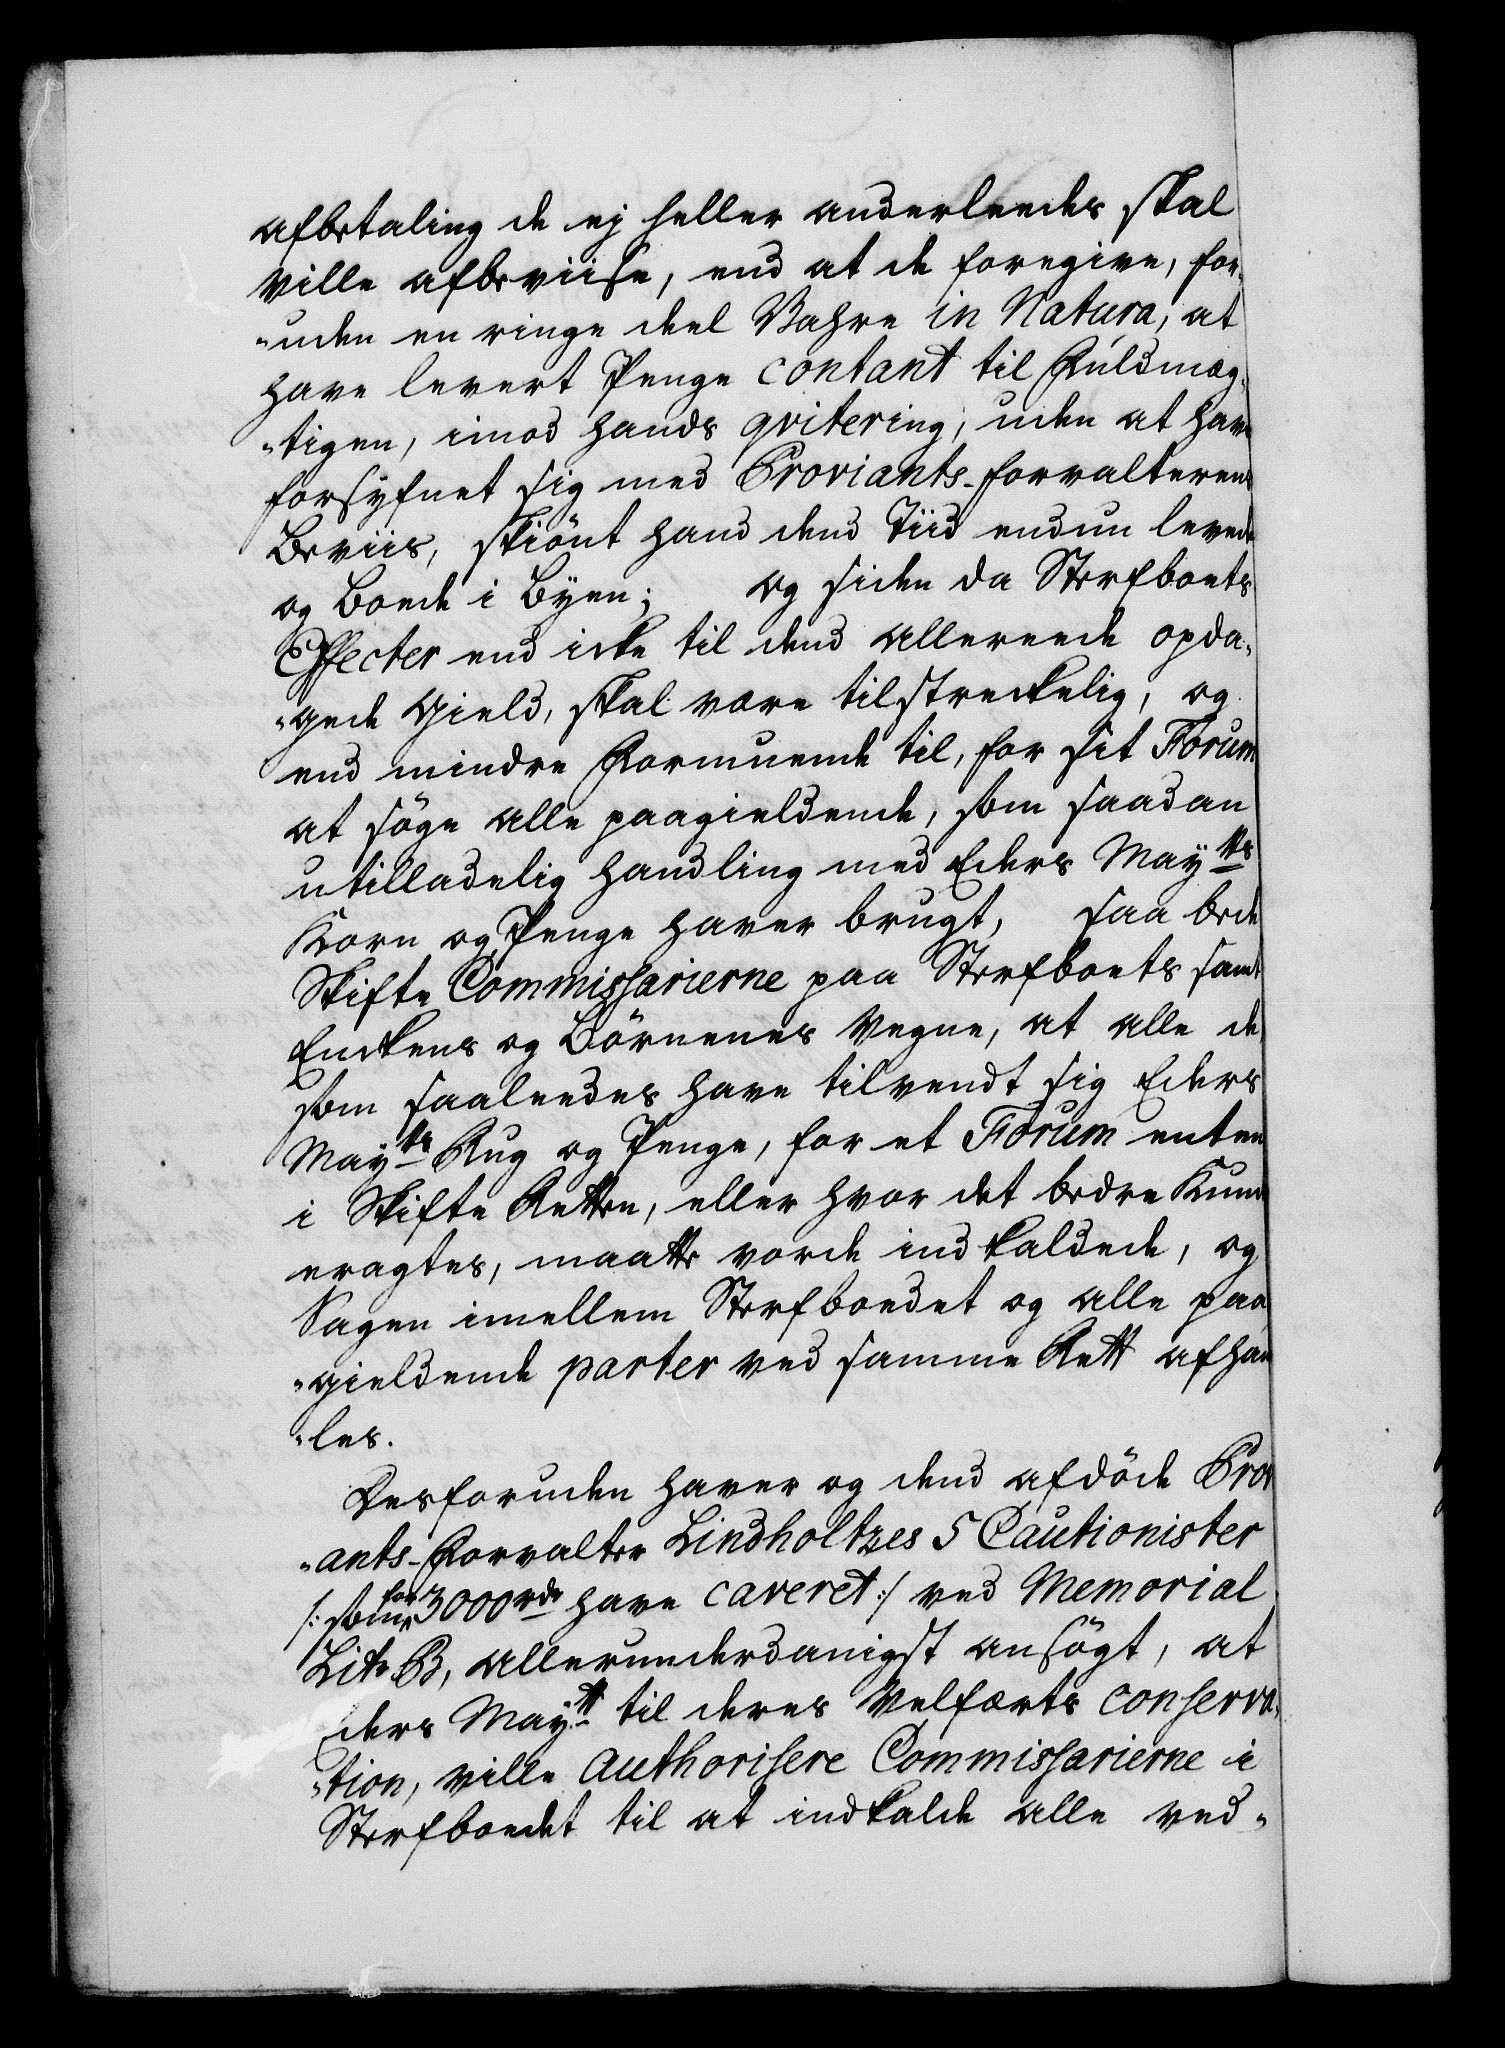 afbetaling de ej heller anderleedes skal
ville afbeviise, end at de foregive, for-
"uden en ringe deel Vahre in Natura, at
have levert Penge contant til Fuldmæg-
"tigen, imod hands qvitering, uden at have
forsyfnet sig med Proviants-forvalterens
Beviis, skiönt hand dend Tiid endnu levede
og Boede i Byen; og siden da Sterfboets
Effecter end icke til dend allereede opda-
"gede Gield, skal være tilstreckelig, og
end mindre Formuende til, for sit Forum
at söge alle paagieldende, som saadan
utilladelig handling med Eders May.ts
Korn og Penge haver brugt, saa bede
Skifte Commissarierne paa Sterfboets samt
Enckens og Börnenes Vegne, at alle de
som saaleedes have tilvendt sig Eders
May.ts Rug og Penge, for et Forum enten
i Skifte Retten, eller hvor det bedre Kunde
eragtes, maatte vorde indkaldede, og
Sagen imellem Sterfboedet og alle paa-
"gieldende parter ved samme Rett afhan-
"les.
Desforuden haver og dend afdöde Provi-
"ants-Forvalter Lindholtzes 5 Cautionister
/: som for 3000 rdr have caveret :/ ved Memorial
Litr B, allerunderdanigst ansögt, at
Eders May.tt til deres Velfærts conserva-
"tion, ville authorisere Commissarierne i
Sterfboedet til at indkalde alle ved-